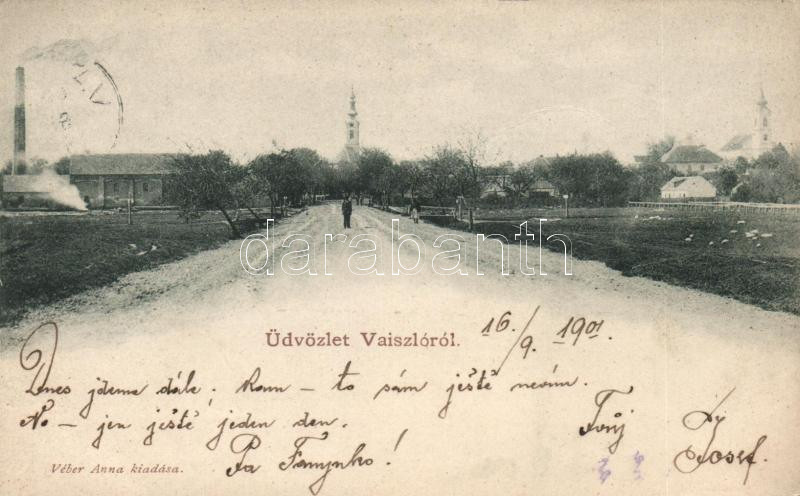 darabanth
Üdvözlet Vaiszlóról.
16/9. 1901.
Dnes jdeme dále. Kam – to sám ještě nevím.
No – jen ještě jeden den.
Tvůj
Pa Fanynko!
Josef.
Véber Anna kiadása.